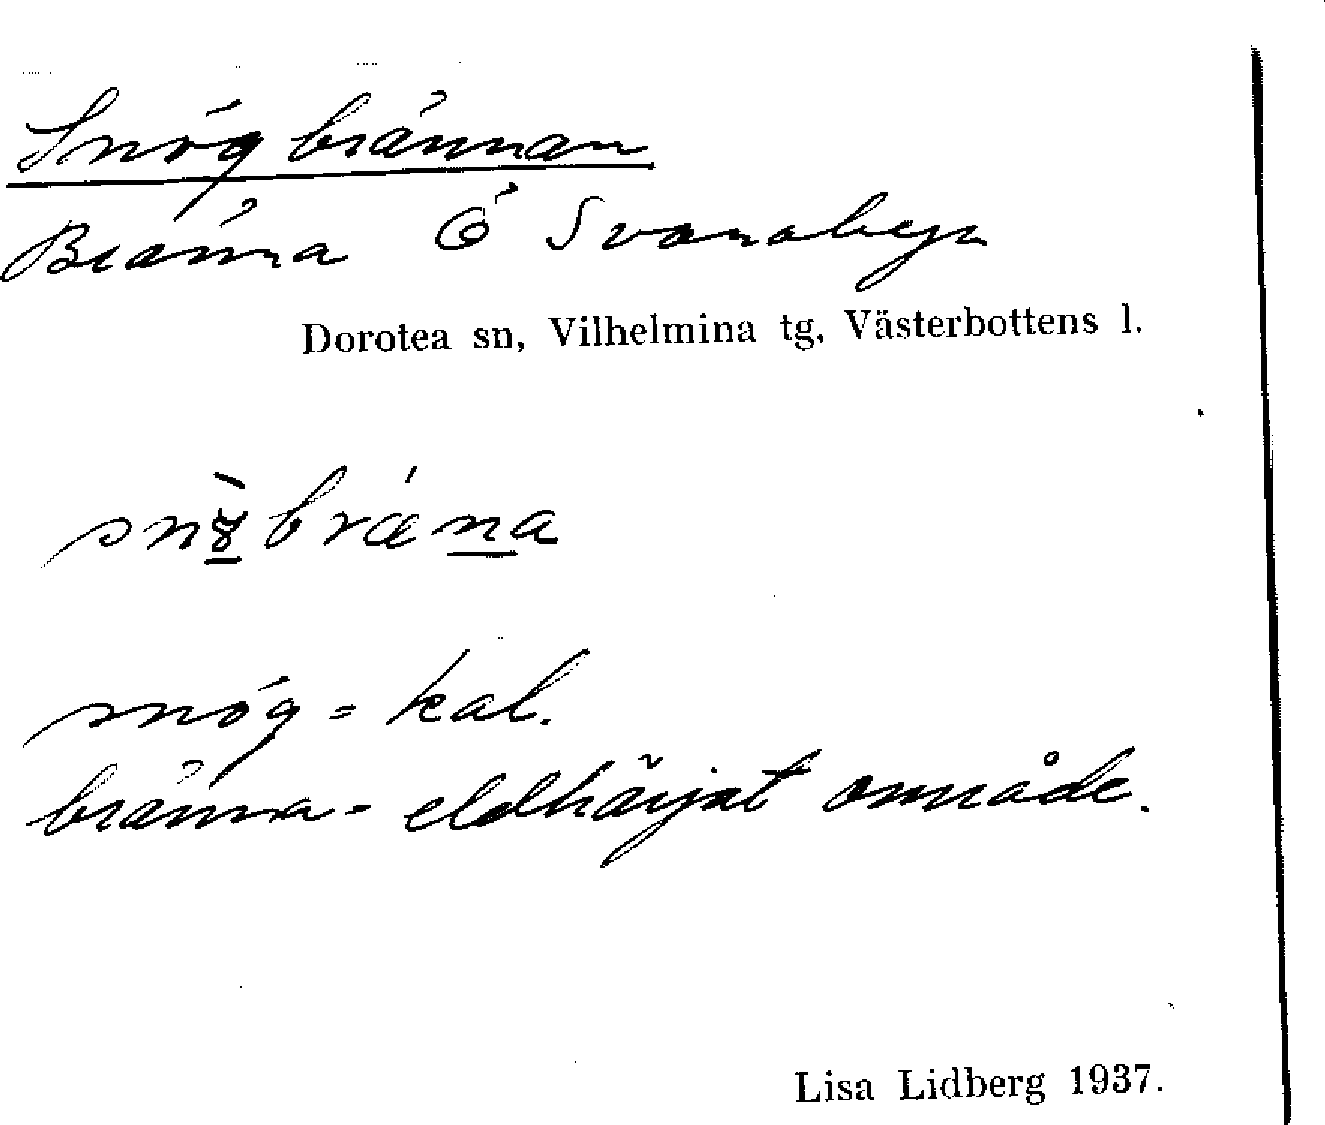 Snögbrännan
Bränna Ö Svanabyn
Dorotea sn, Vilhelmina tg, Västerbottens l.
snög = kal.
bränna = eldhärjat område.
Lisa Lidberg 1937.